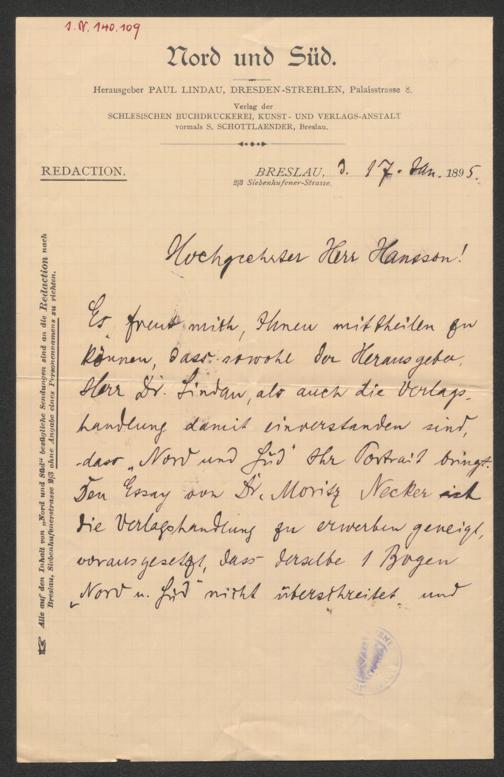 I.N. 140.109
Nord und Süd.
Herausgeber PAUL LINDAU, DRESDEN-STREHLEN, Palaisstrasse 8.
Verlag der
SCHLESISCHEN BUCHDRUCKEREI, KUNST- UND VERLAGS-ANSTALT
vormals S. SCHOTTLAENDER, Breslau.
REDACTION.
BRESLAU, d. 17. Jan. 1895.
2|3 Siebenhufener-Strasse.
Hochgeehrter Herr Hansson!
Es freut mich, Ihnen mittheilen zu
können, dass sowohl der Herausgeber,
Herr Dr. Lindau, als auch die Verlags-
handlung damit einverstanden sind,
dass „Nord und Süd" Ihr Portrait bringt.
Den Essay von Dr. Moritz Necker ist
die Verlagshandlung zu erwerben geneigt,
vorausgesetzt, dass derselbe 1 Bogen
„Nord u. Süd" nicht überschreitet und
Alle auf den Inhalt von „Nord und Süd" bezügliche Sendungen sind an die Redaction nach
Breslau, Siebenhufenerstrasse 2|3 ohne Angabe eines Personennamens zu richten.